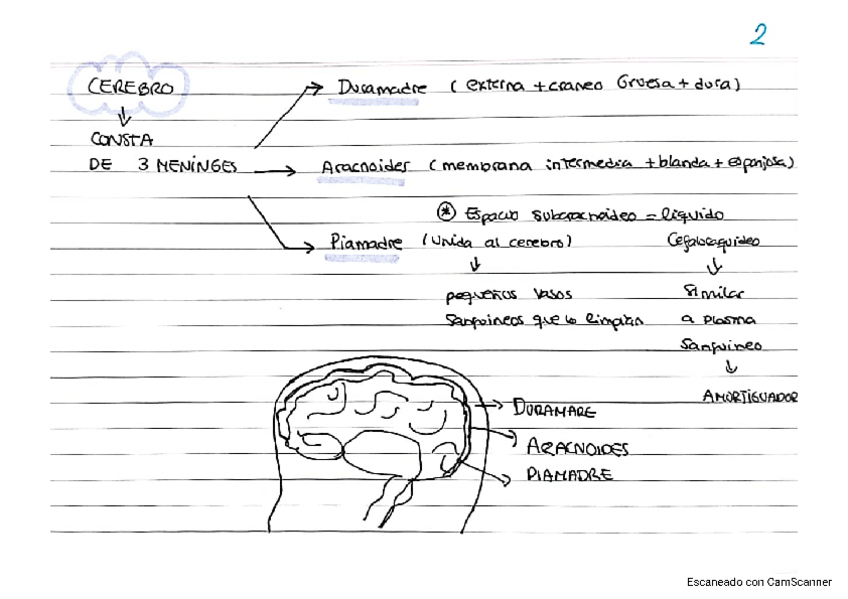 2
CEREBRO
↓
CONSTA
DE 3 MENINGES
→ Duramadre (externa + craneo Gruesa + dura)
→ Aracnoides (membrana intermedia + blanda + esponjosa)
* Espacio subaracnoideo = líquido
Cefaloraquideo
→ Piamadre (Unida al cerebro)
↓
pequeños vasos
sanguineos que lo limpian
↓
Similar
a plasma
sanguineo
↓
AMORTIGUADOR
→ DURAMARE
→ ARACNOIDES
→ PIAMADRE
Escaneado con CamScanner